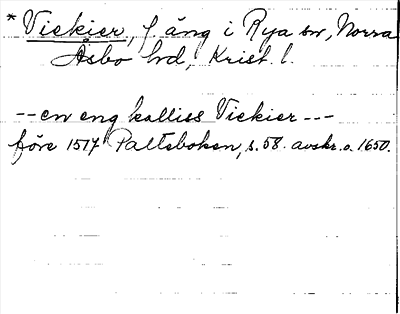 * Viekier, f äng i Rya sn, Norra
Åsbo hd, Krist. l.
-- en eng kalliss Viekier ---
före 1517 Paltebokon, s. 58. avskr. o. 1650.